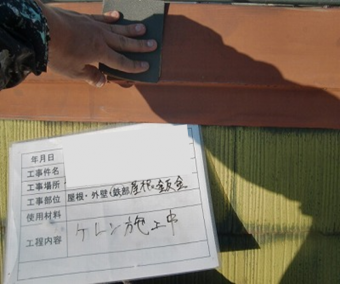 年月日
工事件名
工事場所
工事部位 屋根・外壁・鉄部 屋根 鈑金
使用材料
工程内容 ケレン施工中